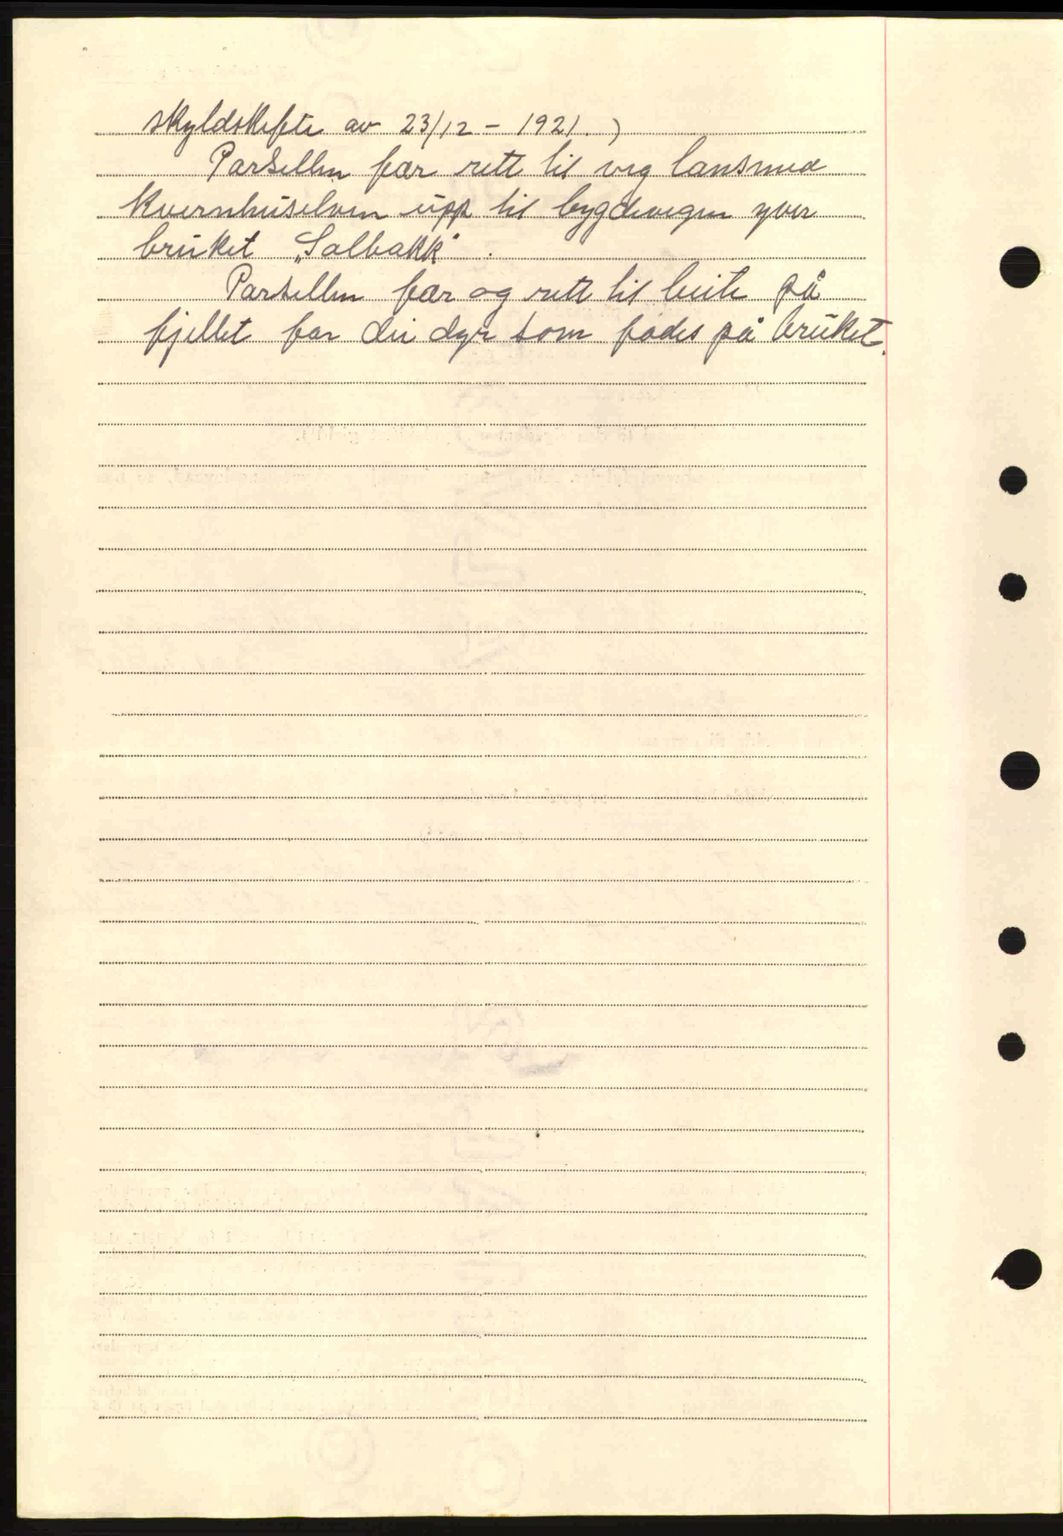 skyldskifte av 23/12 - 1921.)
Parsellen fær rett til veg langsmed
kvernhuselven upp til bygdevegen yver
bruket „Solbakk".
Parsellen fær og rett til beite på
fjellet for dei dyr som fødes på bruket.